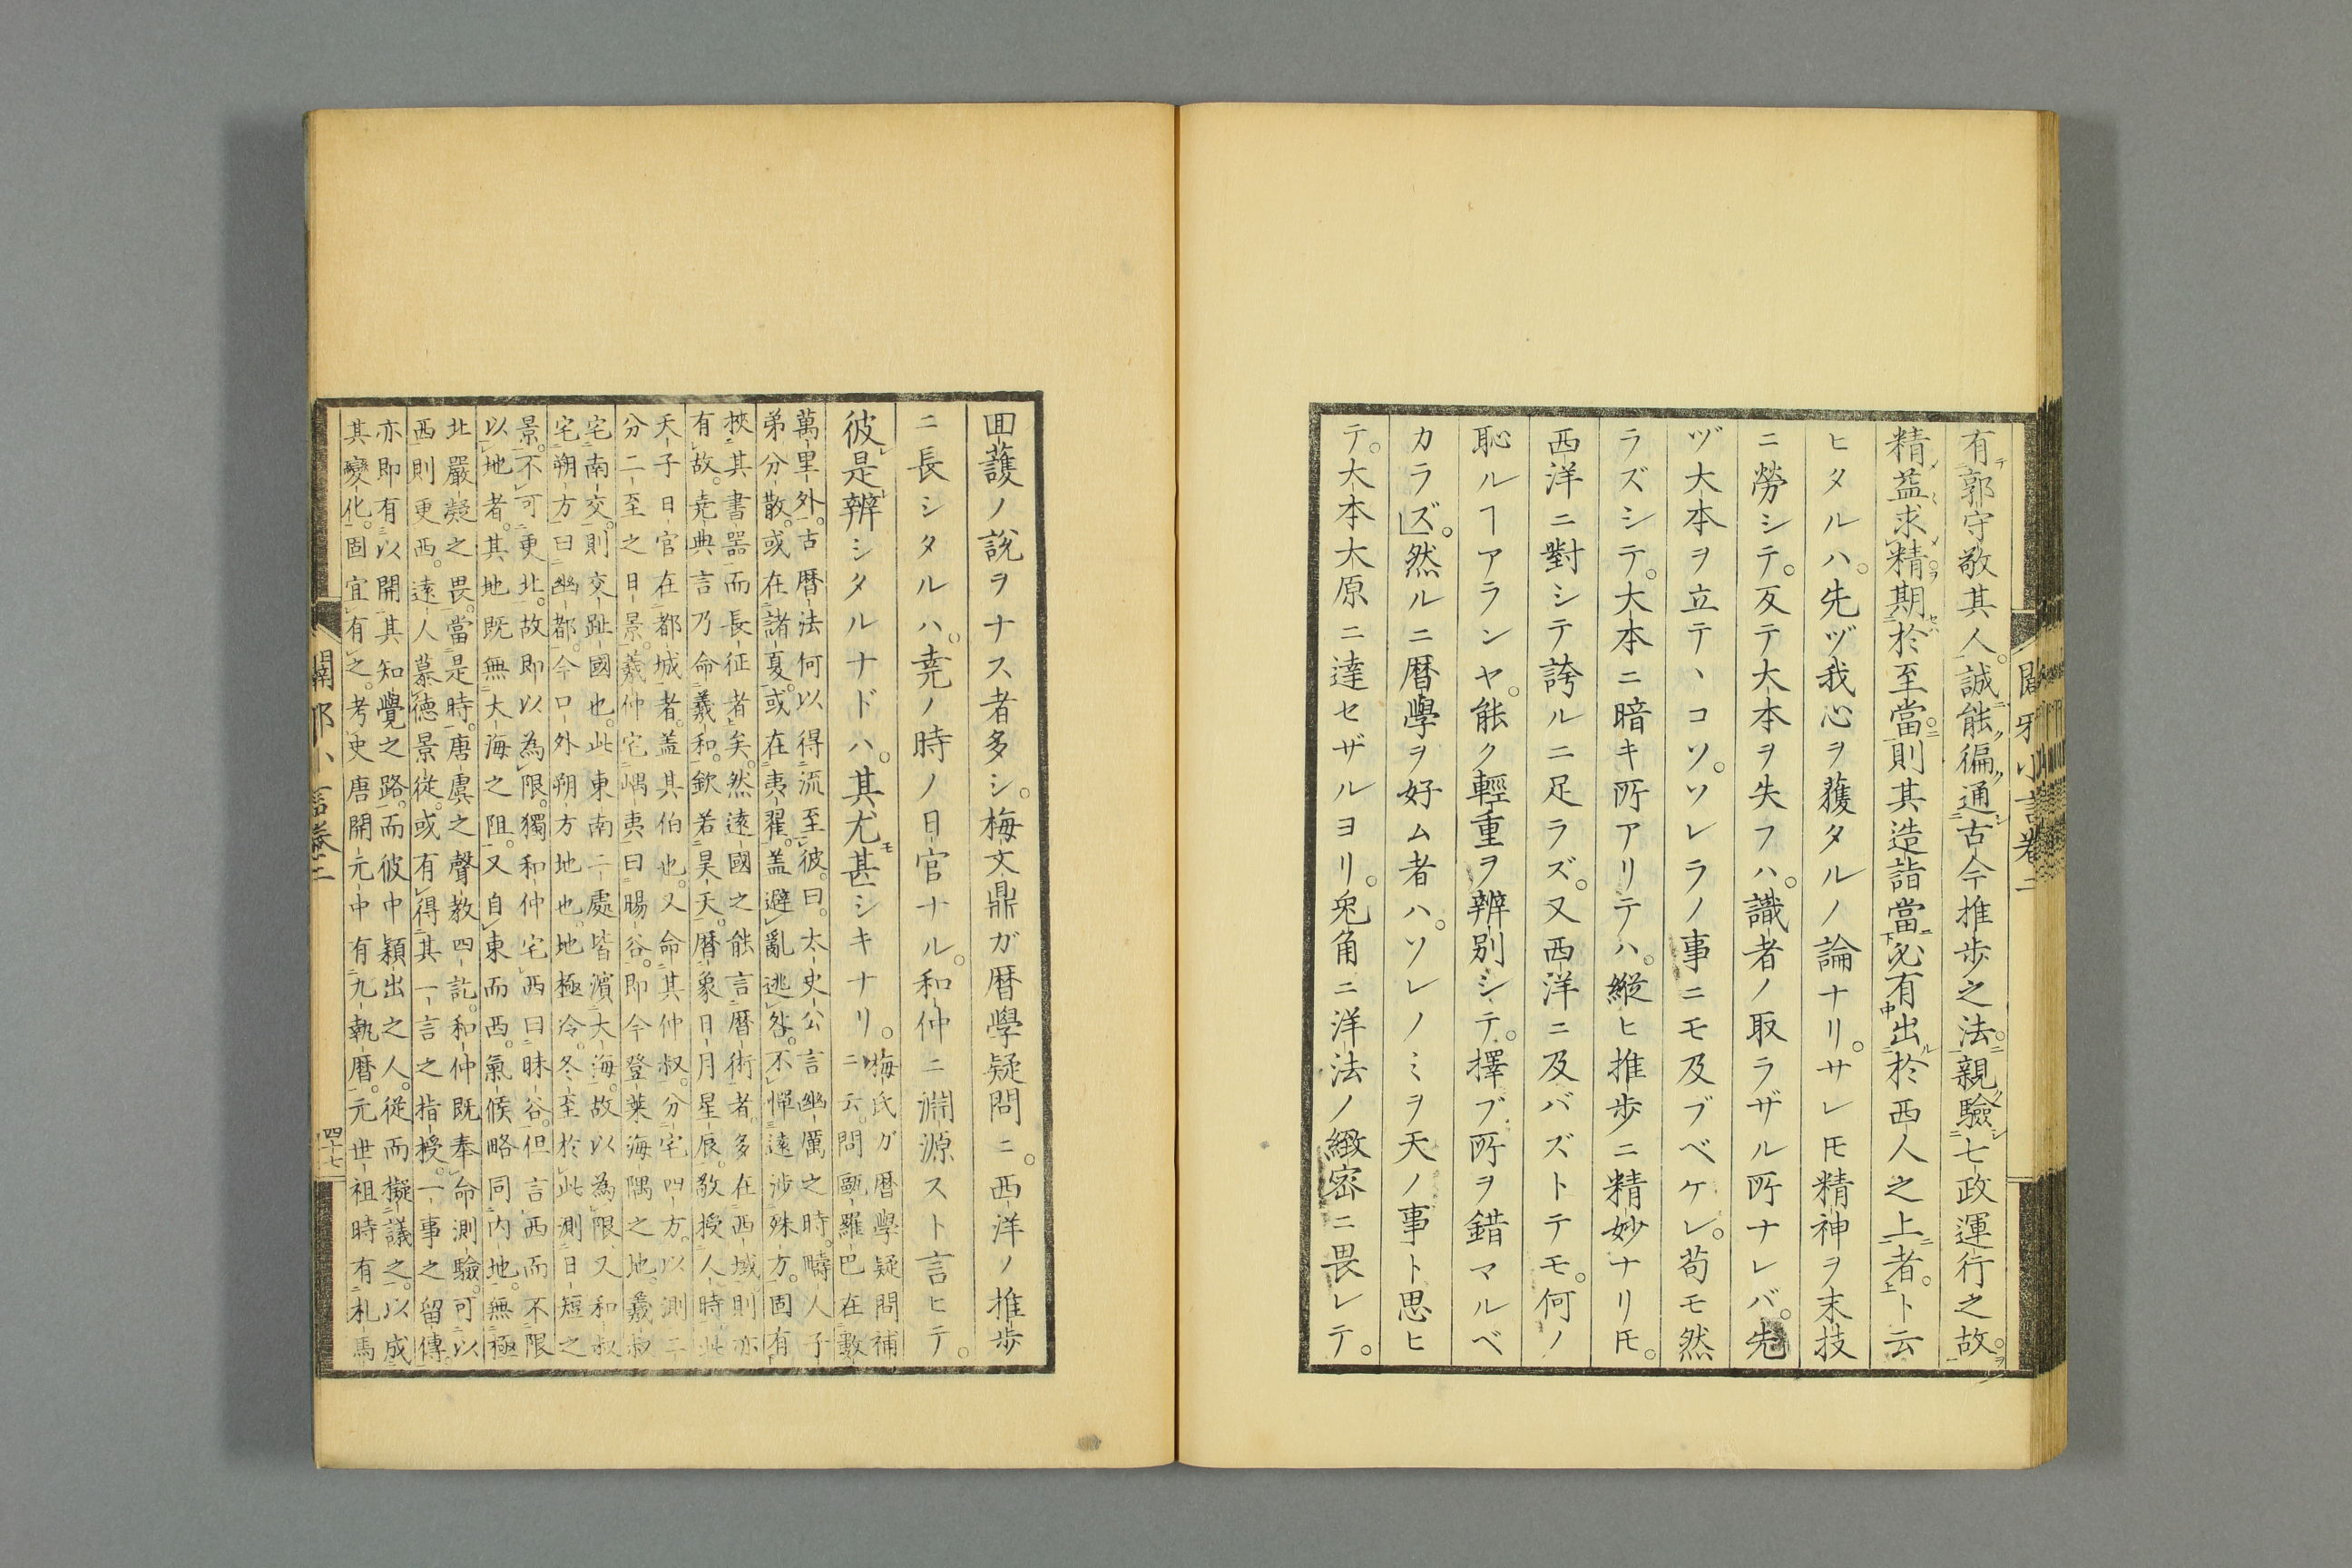 有郭守敬其人。誠能徧通古今推歩之法。親驗七政運行之故。
精益求精。期於至當。則其造詣當必有出於西人之上者。ト云
ヒタルハ。先ヅ我心ヲ獲タルノ論ナリ。サレ𪜈精神ヲ末技
ニ勞シテ。反テ大本ヲ失フハ。識者ノ取ラザル所ナレバ。先
ヅ大本ヲ立テヽコソ。ソレラノ事ニモ及ブベケレ。苟モ然
ラズシテ。大本ニ暗キ所アリテハ。縱ヒ推歩ニ精妙ナリ𪜈。
西洋ニ對シテ誇ルニ足ラズ。又西洋ニ及バズトテモ。何ノ
恥ルヿアランヤ。能ク輕重ヲ辨别シテ。擇ブ所ヲ錯マルベ
カラズ。然ルニ暦學ヲ好ム者ハ。ソレノミヲ天ノ事ト思ヒ
テ。大本大原ニ達セザルヨリ。兎角ニ洋法ノ緻密ニ畏レテ。
囬護ノ說ヲナス者多シ。梅文鼎ガ暦學疑問ニ。西洋ノ推歩
ニ長シタルハ。堯ノ時ノ日官ナル。和仲ニ淵源スト言ヒテ。
彼是辨シタルナドハ。其尤甚シキナリ。
梅氏ガ暦學疑問補
ニ云。問歐羅巴在數
萬里外。古暦法何以得流至彼。曰。太史公言幽厲之時。疇人子
弟分散。或在諸夏。或在夷翟。盖避亂逃咎。不憚遠涉殊方。固有
挾其書器而長征者矣。然遠國之能言暦術者。多在西域。則亦
有故。堯典言乃命羲和。欽若昊天。暦象日月星辰。敬授人時。此
天子日官在都城者。盖其伯也。又命其仲叔。分宅四方。以測二
分二至之日景。羲仲宅嵎夷。曰暘谷。即今登萊海隅之地。羲叔
宅南交。則交趾國也。此東南二處皆濱大海。故以為限。又和叔
宅朔方。曰幽都。今口外朔方地也。地極冷。冬至於此測日短之
景。不可更北。故即以為限。獨和仲宅西。曰昧谷。但言西而不限
以地者。其地既無大海之阻。又自東而西。氣候略同内地。無極
北嚴凝之畏。當是時。唐虞之聲教四訖。和仲既奉命測驗。可以
西則更西。遠人慕德景從。或有得其一言之指授。一事之留傳。
亦即有以開其知覺之路。而彼中穎出之人。從而擬議之。以成
其變化。固宜有之。考史唐開元中有九執暦。元世祖時有札馬
四十七